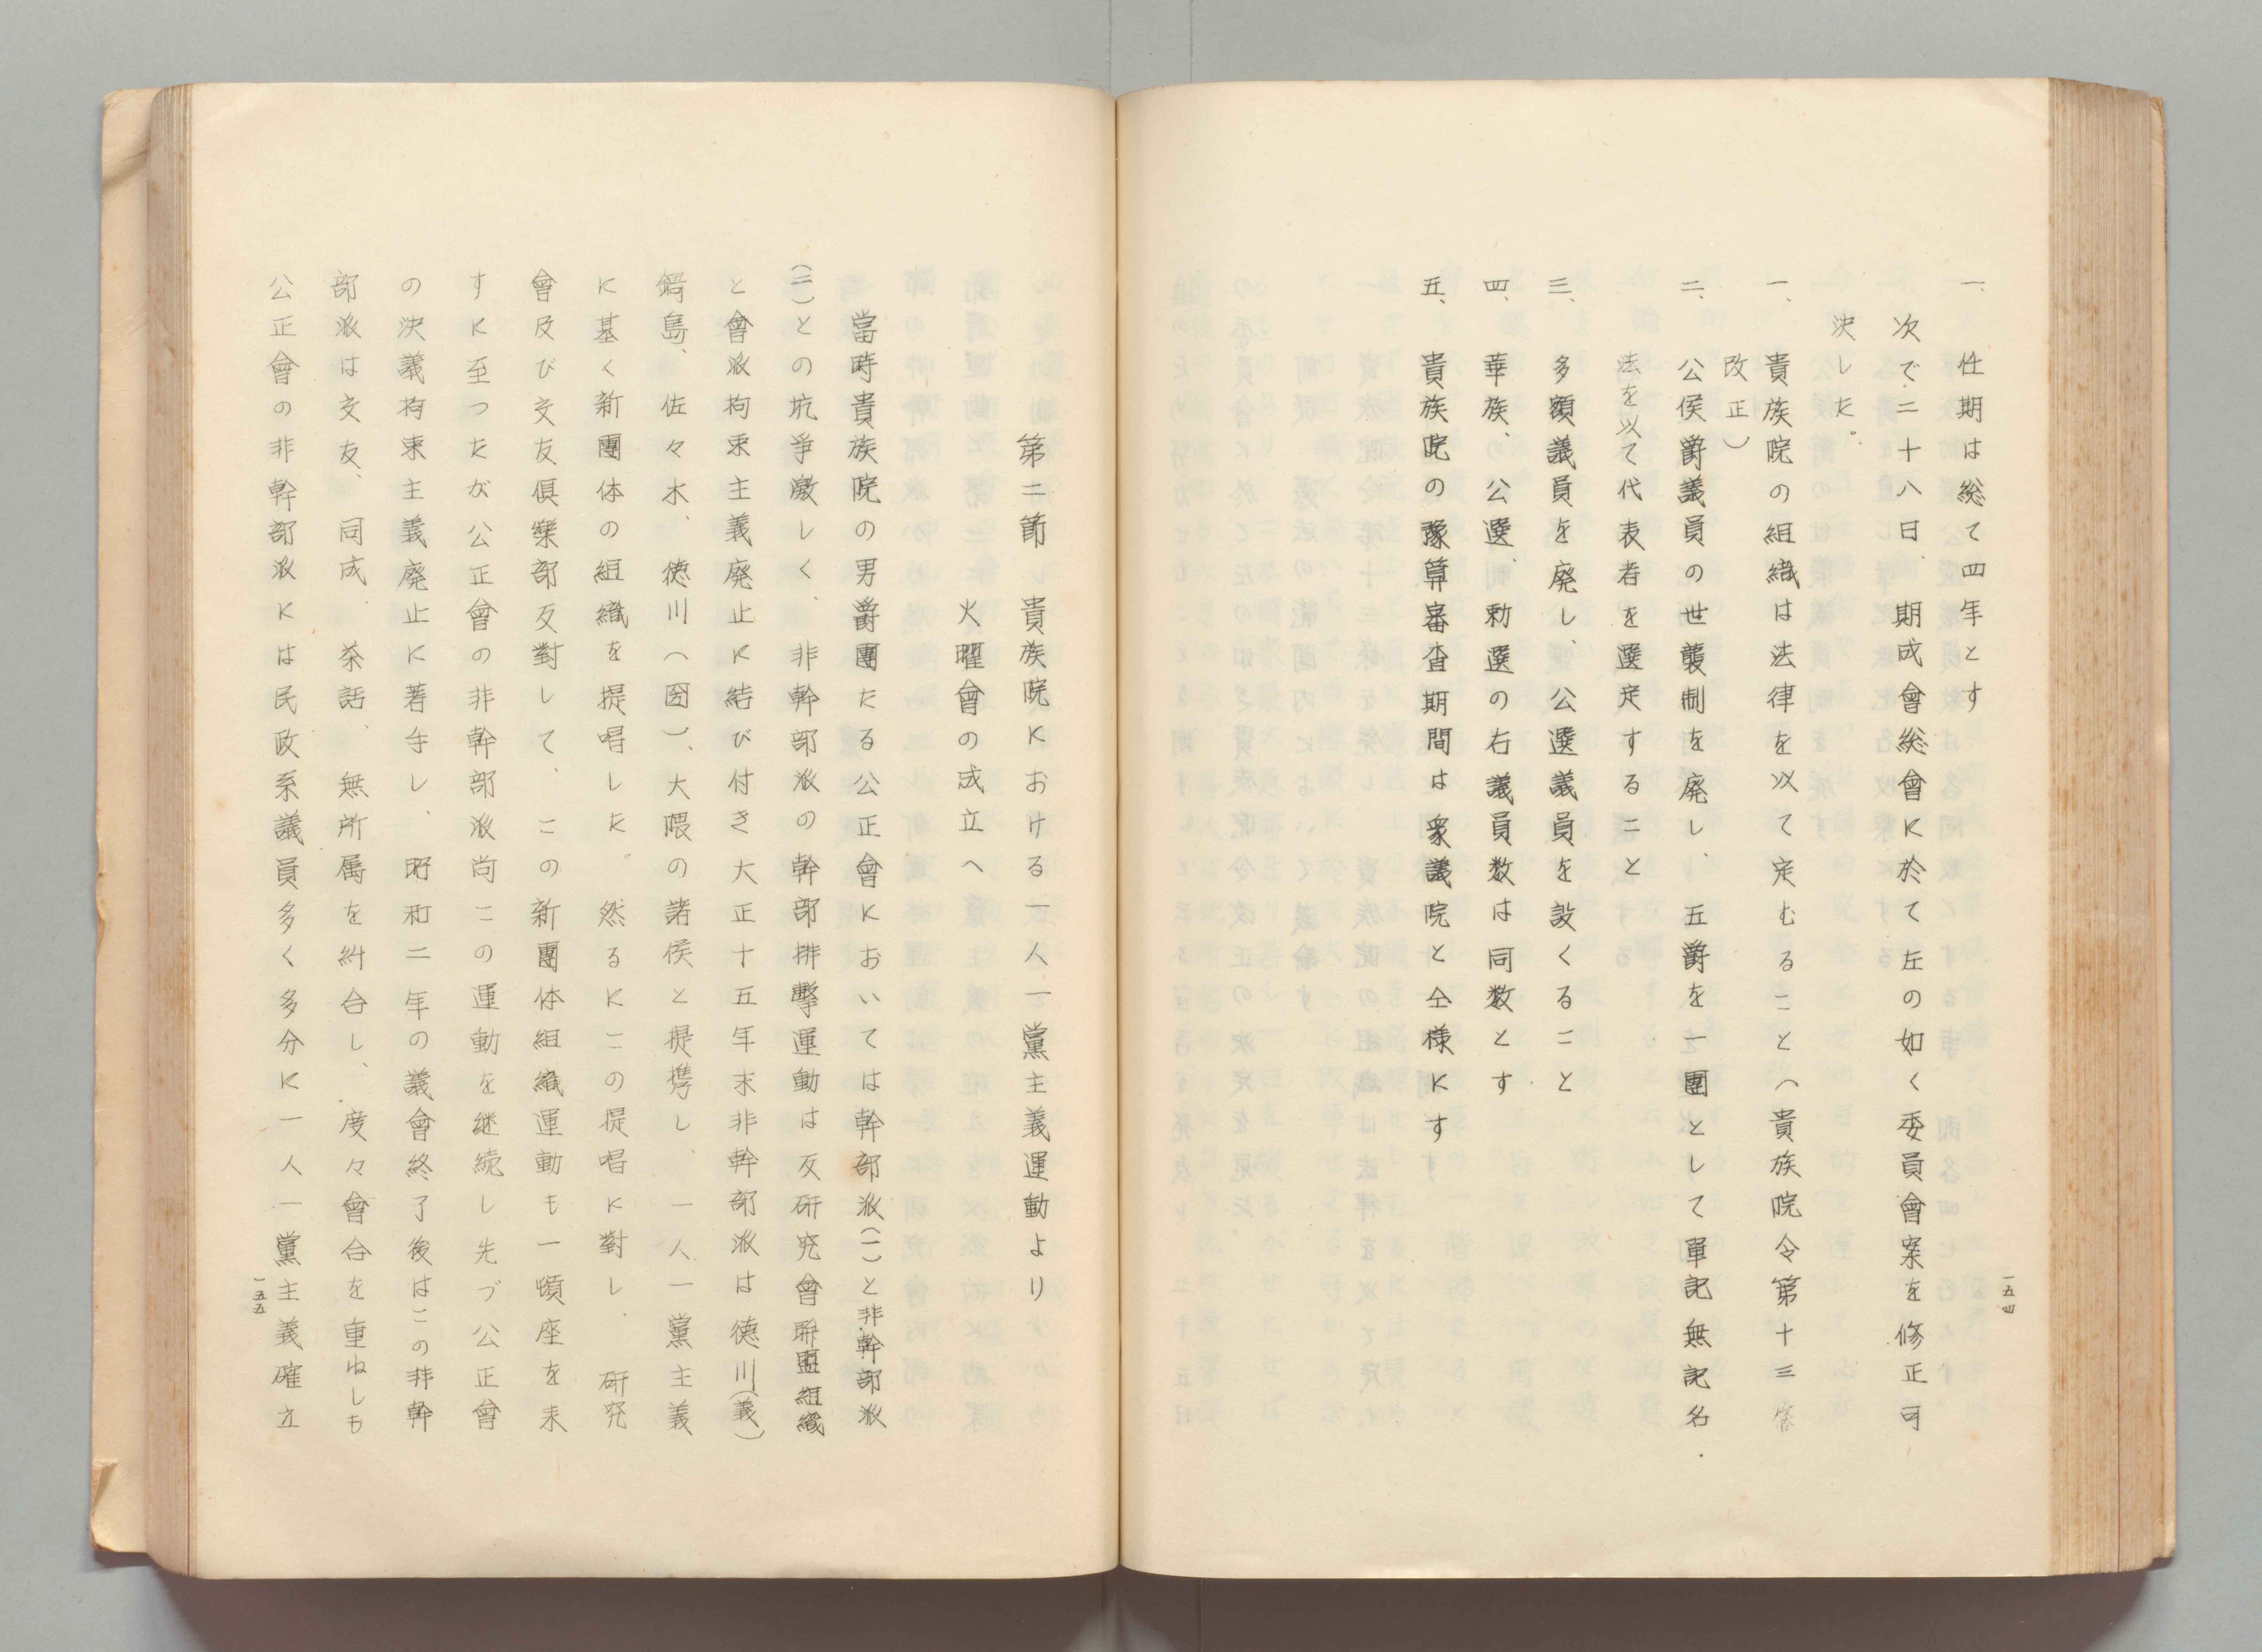 一、任期は総て四年とす
次で二十八日、期成會総會に於て左の如く委員會案を修正可
決した。
一、貴族院の組織は法律を以て定むること（貴族院令第十三條
改正）
二、公侯爵議員の世襲制を廃し、五爵を一團として單記無記名
法を以て代表者を選定すること
三、多額議員を廃し、公選議員を設くること
四、華族、の公選、勅選の右議員数は同数とす
五、貴族院の豫算審査期間は衆議院と仝様にす
一五四
第二節　貴族院における一人一黨主義運動より
火曜會の成立へ
當時貴族院の男爵團たる公正會においては幹部派（一）と非幹部派
（二）との抗爭激しく、非幹部派の幹部排擊運動は反研究會聯盟組織
と會派拘束主義廃止に結び付き大正十五年末非幹部派は徳川（義）
鍋島、佐々木、徳川（圀）、大隈の諸侯と提携し、一人一黨主義
に基く新團体の組織を提唱した。然るにこの提唱に對し、研究
會及び交友倶楽部反對して、この新團体組織運動も一頓座を来
すに至つたが公正會の非幹部派尚この運動を継続し先づ公正會
の決議拘束主義廃止に著手し、昭和二年の議會終了後はこの非幹
部派は交友、同成、茶話、無所属を糾合し、度々會合を重ねしも
公正會の非幹部派には民政系議員多く多分に一人一黨主義確立
一五五